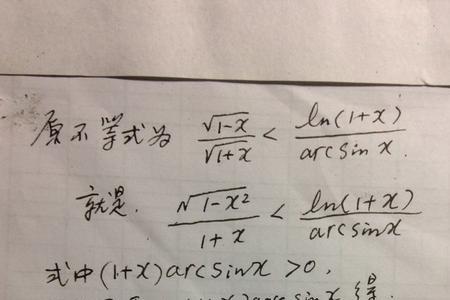 原不等式为 √(1-x)/√(1+x) < ln(1+x)/arcsin x.
就是. √(1-x²)/(1+x) < ln(1+x)/arcsin x
式中(1+x)arcsinx >0,